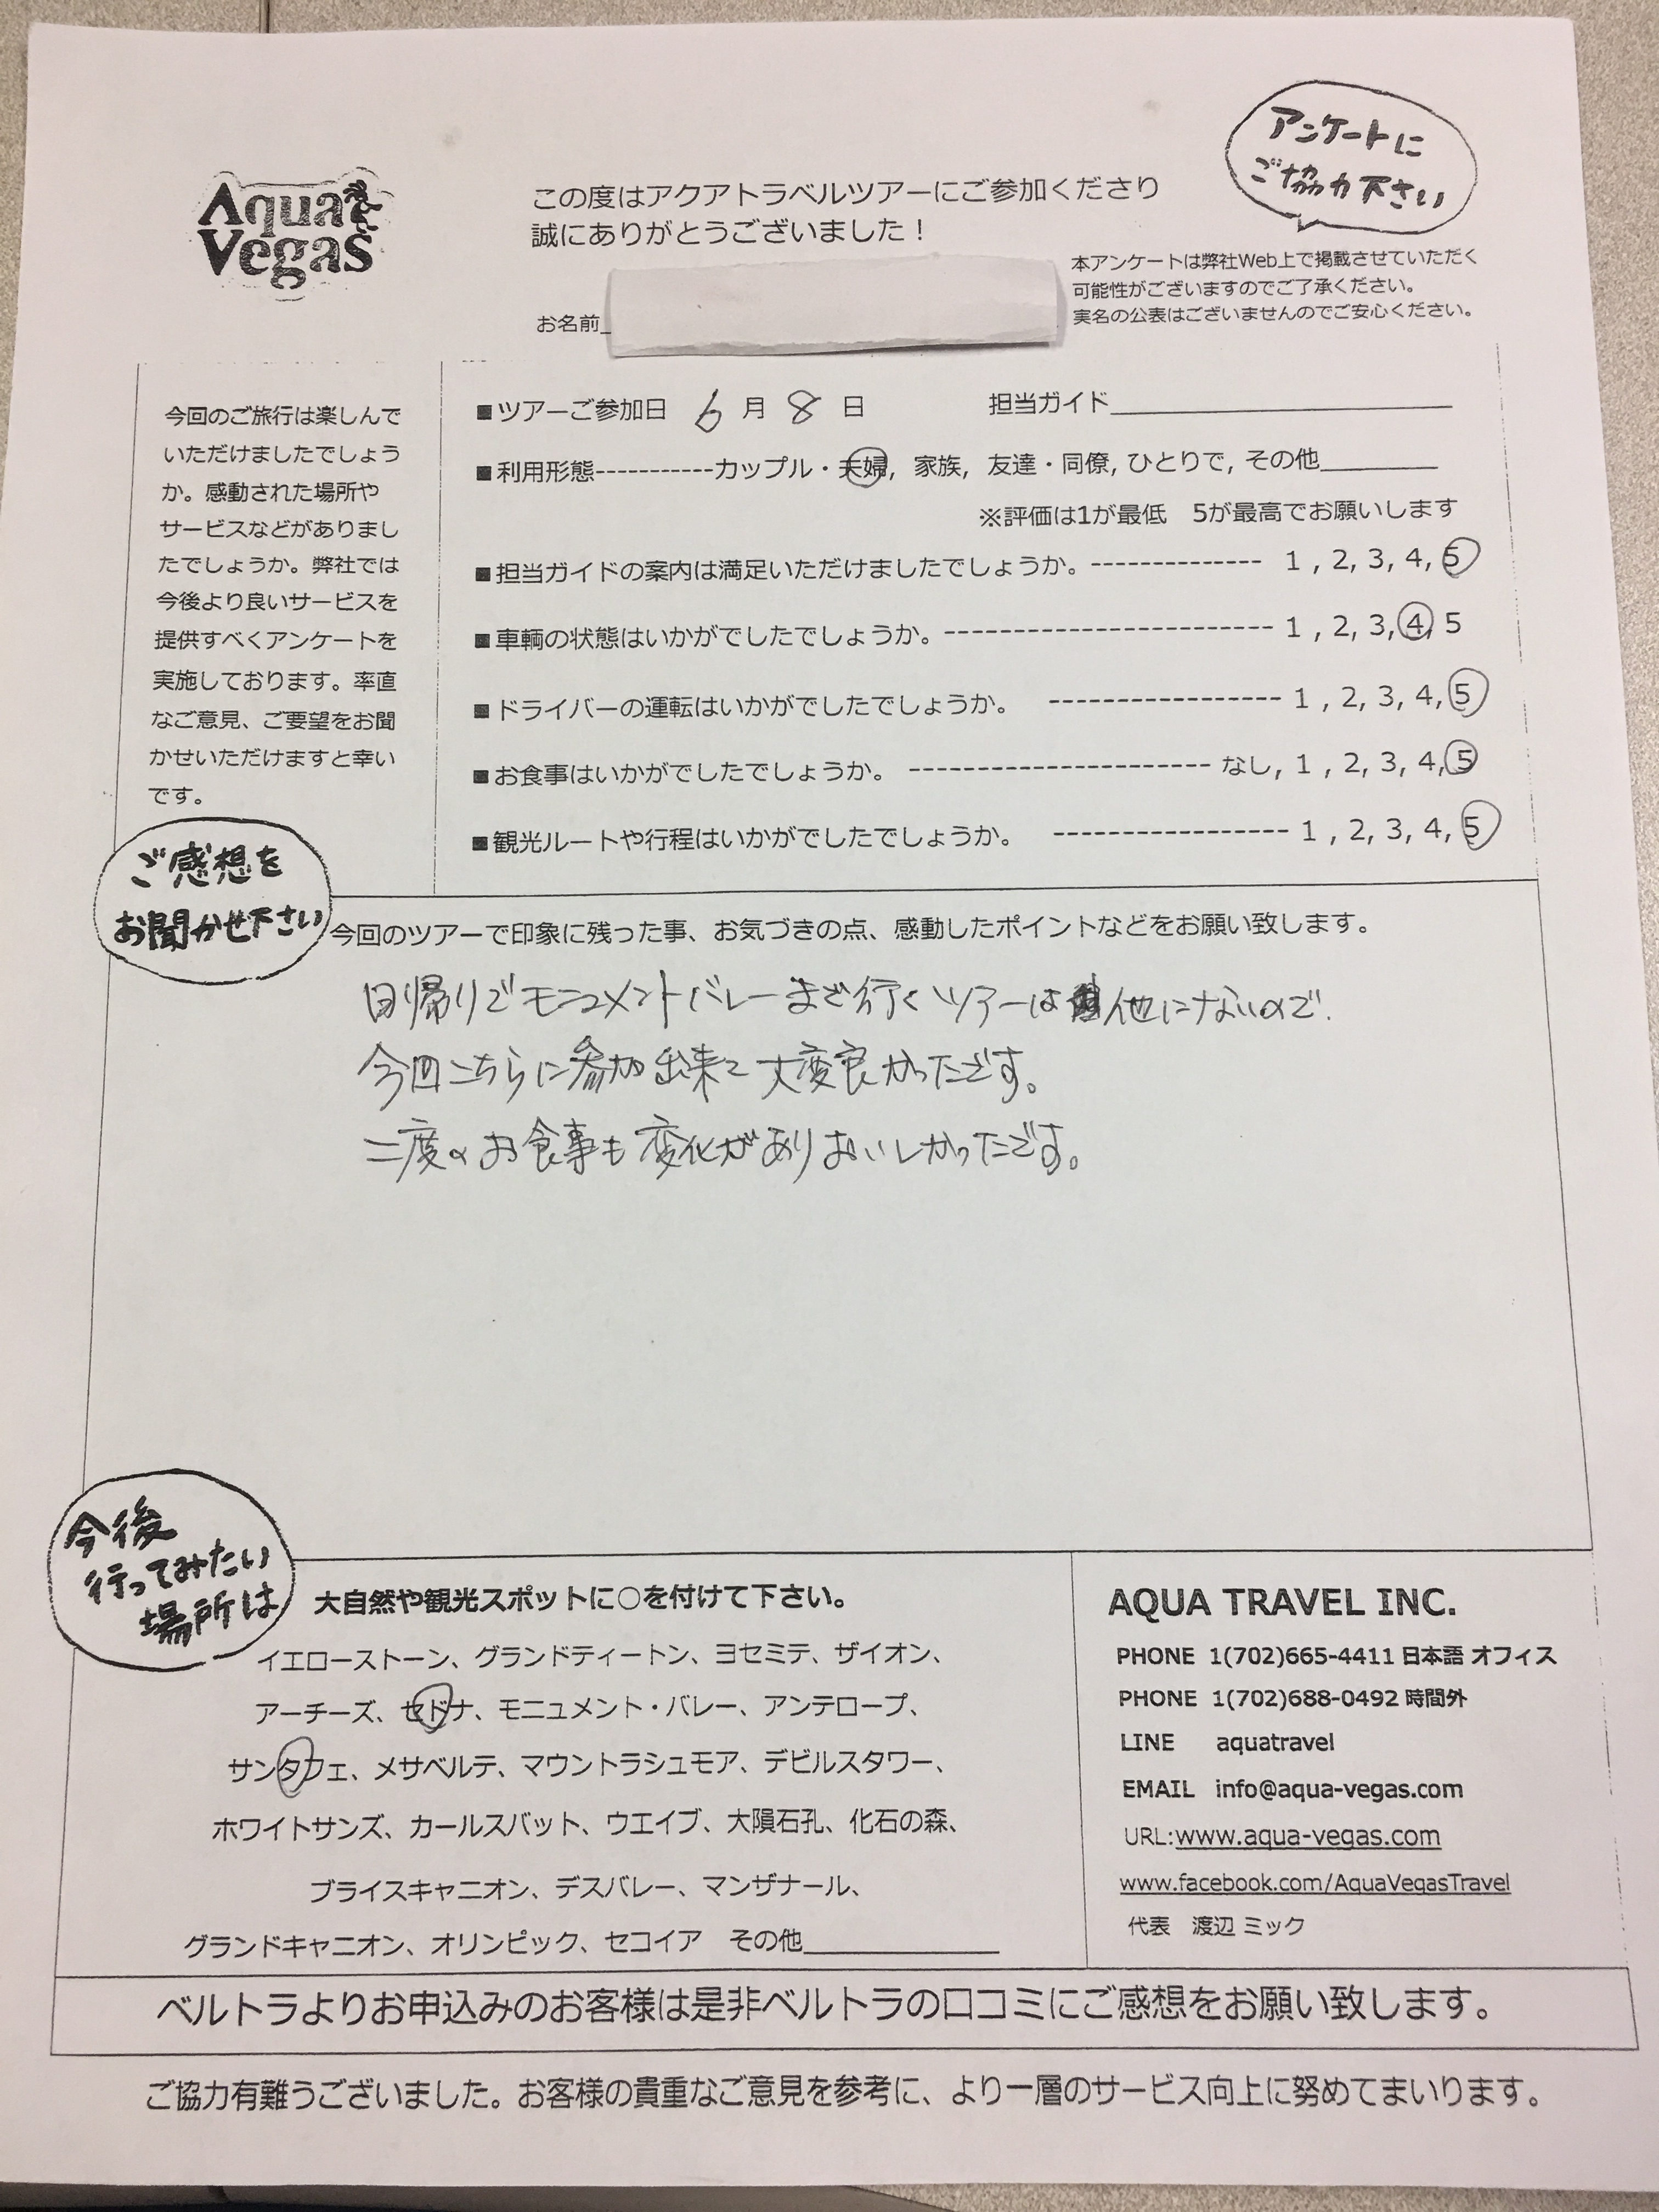 Aqua
Vegas
この度はアクアトラベルツアーにご参加くださり
誠にありがとうございました！
アンケートに
ご協力下さい
本アンケートは弊社Web上で掲載させていただく
可能性がございますのでご了承ください。
実名の公表はございませんのでご安心ください。
お名前
今回のご旅行は楽しんで
いただけましたでしょう
か。感動された場所や
サービスなどがありまし
たでしょうか。弊社では
今後より良いサービスを
提供すべくアンケートを
実施しております。率直
なご意見、ご要望をお聞
かせいただけますと幸い
です。
■ツアーご参加日 6 月 8 日 担当ガイド
■利用形態-----------カップル・夫婦, 家族, 友達・同僚, ひとりで, その他
※評価は1が最低 5が最高でお願いします
■担当ガイドの案内は満足いただけましたでしょうか。------------- 1 , 2, 3, 4, 5
■車輌の状態はいかがでしたでしょうか。------------------------- 1 , 2, 3, 4, 5
■ドライバーの運転はいかがでしたでしょうか。 ----------------- 1 , 2, 3, 4, 5
■お食事はいかがでしたでしょうか。 ---------------------- なし, 1 , 2, 3, 4, 5
■観光ルートや行程はいかがでしたでしょうか。 ----------------- 1 , 2, 3, 4, 5
ご感想を
お聞かせ下さい
今回のツアーで印象に残った事、お気づきの点、感動したポイントなどをお願い致します。
日帰りでモニュメントバレーまで行くツアーは他にないので.
今回こちらに参加出来て大変良かったです。
二度のお食事も変化がありおいしかったです。
今後
行ってみたい
場所は
大自然や観光スポットに○を付けて下さい。
イエローストーン、グランドティートン、ヨセミテ、ザイオン、
アーチーズ、セドナ、モニュメント・バレー、アンテロープ、
サンタフェ、メサベルテ、マウントラシュモア、デビルスタワー、
ホワイトサンズ、カールスバット、ウエイブ、大隕石孔、化石の森、
ブライスキャニオン、デスバレー、マンザナール、
グランドキャニオン、オリンピック、セコイア その他
AQUA TRAVEL INC.
PHONE 1(702)665-4411 日本語 オフィス
PHONE 1(702)688-0492 時間外
LINE aquatravel
EMAIL info@aqua-vegas.com
URL:www.aqua-vegas.com
www.facebook.com/AquaVegasTravel
代表 渡辺 ミック
ベルトラよりお申込みのお客様は是非ベルトラの口コミにご感想をお願い致します。
ご協力有難うございました。お客様の貴重なご意見を参考に、より一層のサービス向上に努めてまいります。